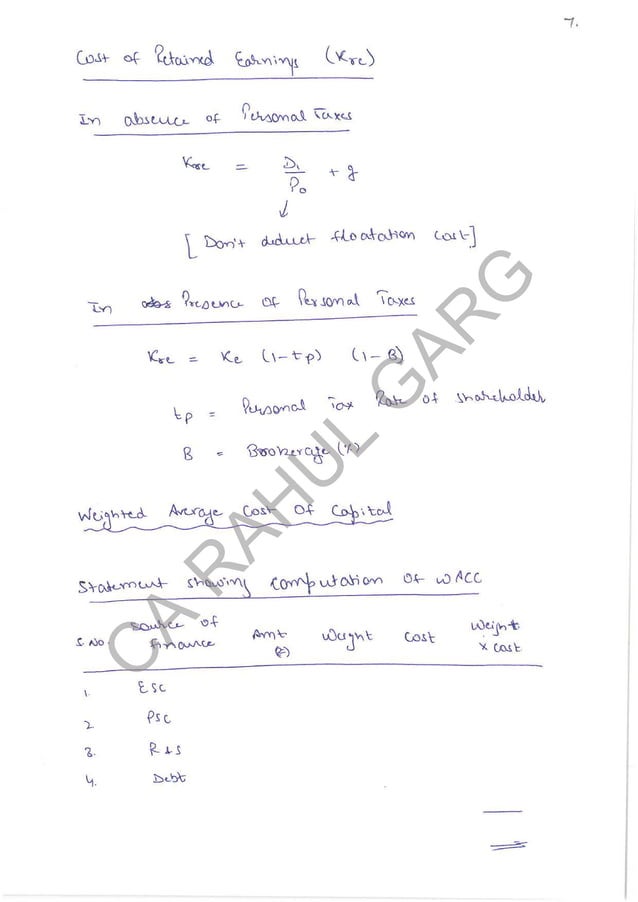 7.
Cost of Retained Earnings (Kre)
In absence of Personal Taxes
Kre = D1 / P0 + g
[ Don't deduct floatation cost ]
In Presence of Personal Taxes
Kre = Ke (1-tp) (1-B)
tp = Personal Tax Rate of shareholder
B = Brokerage (%)
Weighted Average Cost Of Capital
Statement showing computation of WACC
S.No. Source of Finance Amt (₹) Weight Cost Weight x Cost
1. ESC
2 PSC
3. R+S
4. Debt
CA RAHUL GARG